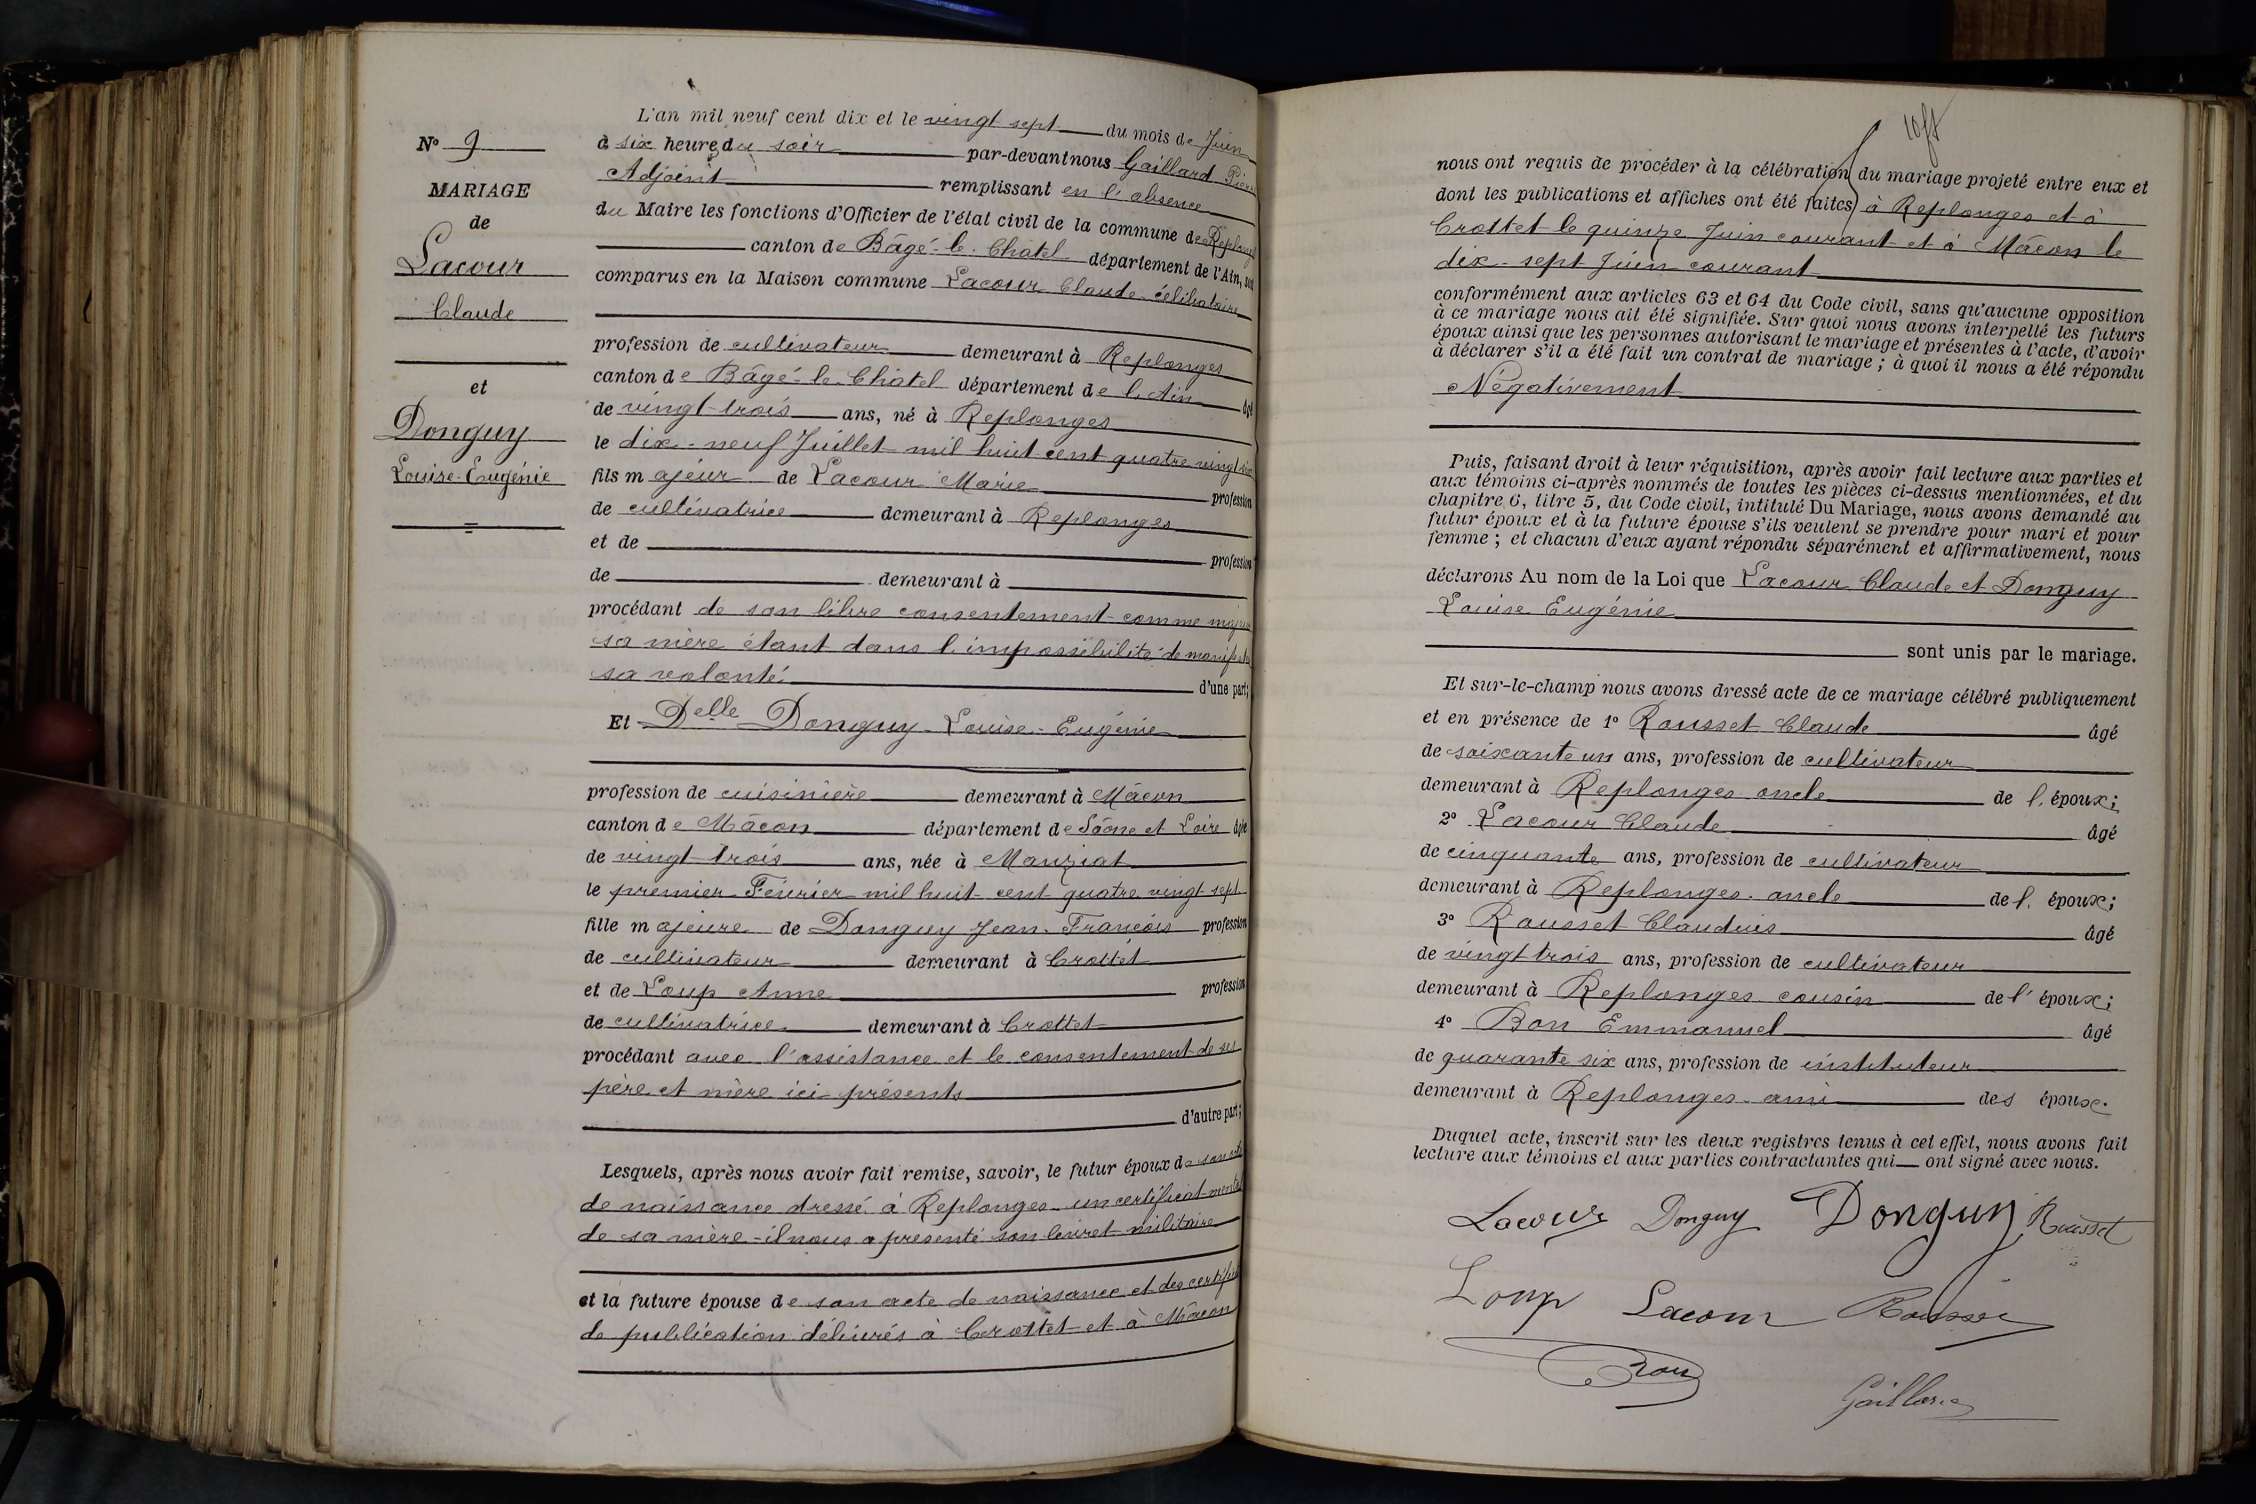 N° 9
MARIAGE
de
Lacour
Claude
et
Donguy
Louise-Eugénie
L'an mil neuf cent dix et le vingt sept du mois de Juin
à six heures du soir par-devant nous Gaillard
Adjoint remplissant en l'absence
du Maire les fonctions d'Officier de l'état civil de la commune de Replonges
canton de Bâgé-le-Châtel département de l'Ain, sont
comparus en la Maison commune Lacour Claude célibataire
profession de cultivateur demeurant à Replonges
canton de Bâgé-le-Châtel département de l'Ain âgé
de vingt-trois ans, né à Replonges
le dix-neuf Juillet mil huit cent quatre vingt six
fils majeur de Lacour Marie profession
de cultivatrice demeurant à Replonges
et de profession
de demeurant à
procédant de son libre consentement comme majeur
sa mère étant dans l'impossibilité de manifester
sa volonté d'une part;
Et Delle Donguy Louise-Eugénie
profession de cuisinière demeurant à Mâcon
canton de Mâcon département de Saône et Loire âgée
de vingt trois ans, née à Manziat
le premier Février mil huit cent quatre vingt sept
fille majeure de Donguy Jean-François profession
de cultivateur demeurant à Crottet
et de Loup Anne profession
de cultivatrice demeurant à Crottet
procédant avec l'assistance et le consentement de ses
père et mère ici présents
d'autre part;
Lesquels, après nous avoir fait remise, savoir, le futur époux de son acte
de naissance dressé à Replonges un certificat mental
de sa mère - il nous a présenté son livret militaire
et la future épouse de son acte de naissance et des certificats
de publication délivrés à Crottet et à Mâcon
nous ont requis de procéder à la célébration du mariage projeté entre eux et
dont les publications et affiches ont été faites à Replonges et à
Crottet le quinze Juin courant et à Mâcon le
dix-sept Juin courant
conformément aux articles 63 et 64 du Code civil, sans qu'aucune opposition
à ce mariage nous ait été signifiée. Sur quoi nous avons interpellé les futurs
époux ainsi que les personnes autorisant le mariage et présentes à l'acte, d'avoir
à déclarer s'il a été fait un contrat de mariage; à quoi il nous a été répondu
Négativement
Puis, faisant droit à leur réquisition, après avoir fait lecture aux parties et
aux témoins ci-après nommés de toutes les pièces ci-dessus mentionnées, et du
chapitre 6, titre 5, du Code civil, intitulé Du Mariage, nous avons demandé au
futur époux et à la future épouse s'ils veulent se prendre pour mari et pour
femme; et chacun d'eux ayant répondu séparément et affirmativement, nous
déclarons Au nom de la Loi que Lacour Claude et Donguy
Louise Eugénie
sont unis par le mariage.
Et sur-le-champ nous avons dressé acte de ce mariage célébré publiquement
et en présence de 1° Rousset Claude âgé
de soixante un ans, profession de cultivateur
demeurant à Replonges oncle de l'époux;
2° Lacour Claude âgé
de cinquante ans, profession de cultivateur
demeurant à Replonges oncle de l'époux;
3° Rousset Claudius âgé
de vingt trois ans, profession de cultivateur
demeurant à Replonges cousin de l'époux;
4° Bon Emmanuel âgé
de quarante six ans, profession de instituteur
demeurant à Replonges ami des époux.
Duquel acte, inscrit sur les deux registres tenus à cet effet, nous avons fait
lecture aux témoins et aux parties contractantes qui ont signé avec nous.
Lacour Donguy Donguy Rousset
Loup Lacour Rousset
Bon
Gaillard